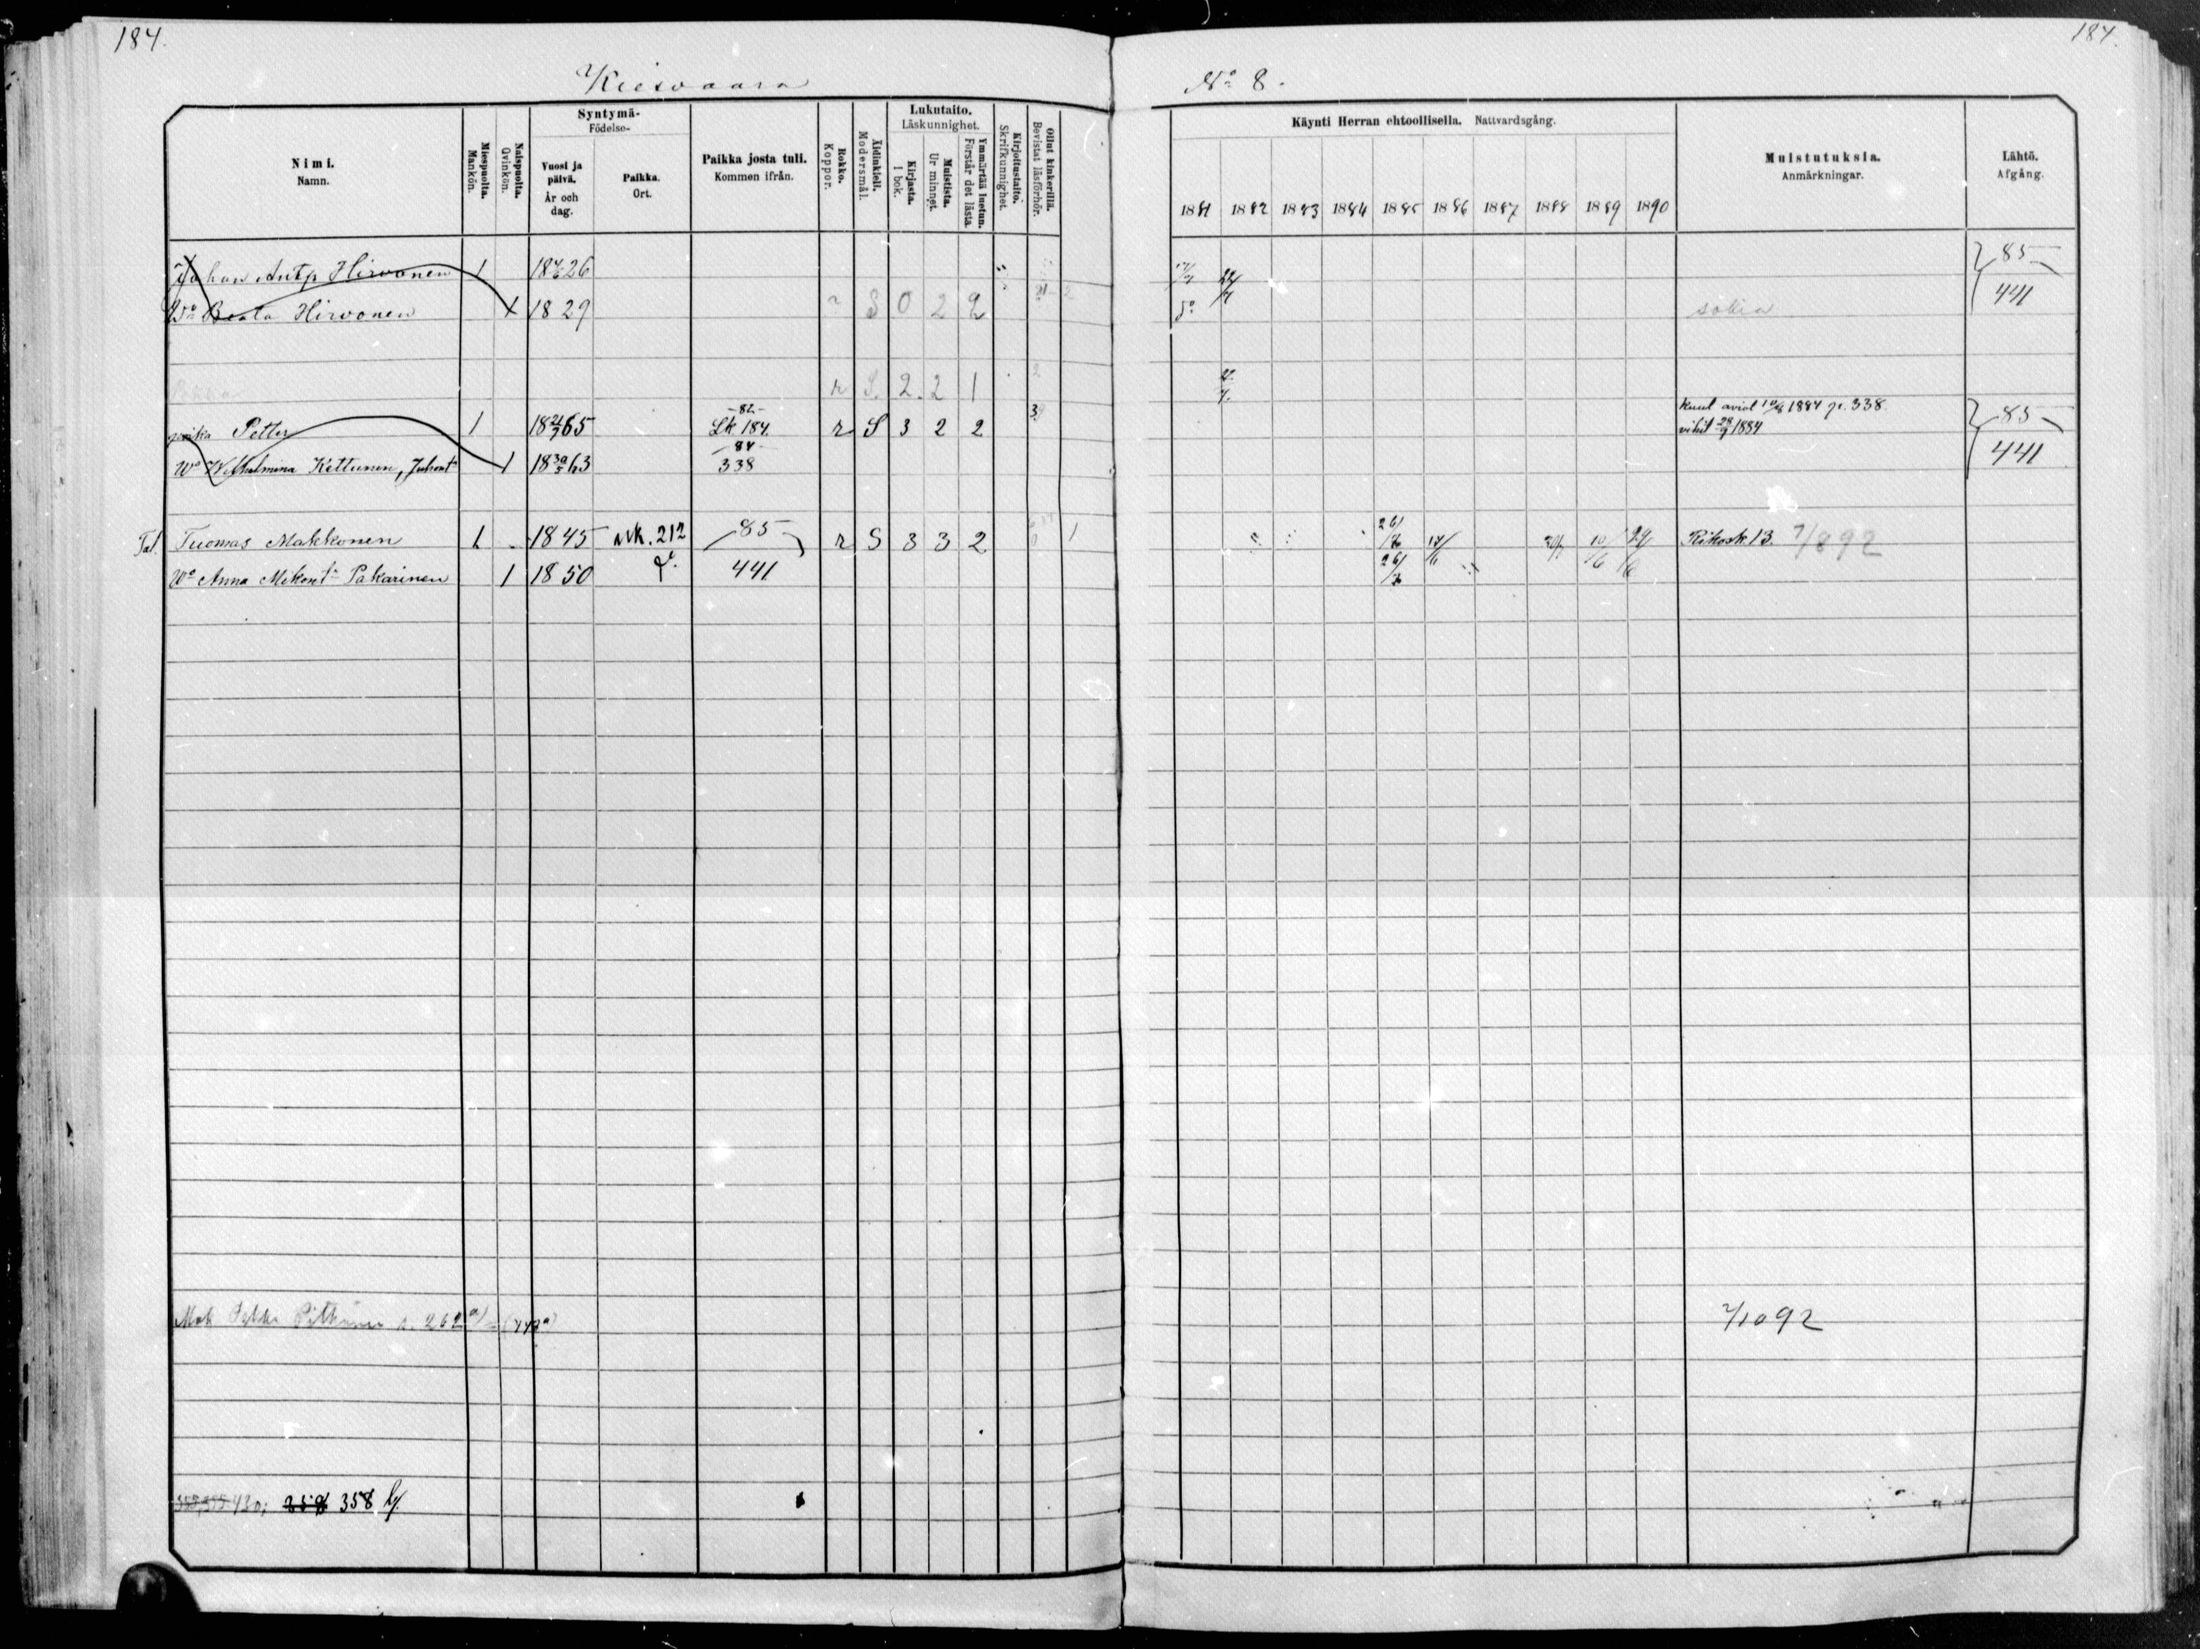 184.
184.
Kiesvaara
No 8.
Nimi.
Namn.
Miespuolta.
Mankön.
Naispuolta.
Qvinkön.
Syntymä-
Födelse-
Vuosi ja päivä.
År och dag.
Paikka.
Ort.
Paikka josta tuli.
Kommen ifrån.
Rokko.
Koppor.
Äidinkieli.
Modersmål.
Lukutaito.
Läskunnighet.
Kirjasta.
I bok.
Muistista.
Ur minnet.
Ymmärtää luetun.
Förstår det lästa
Kirjoitustaito.
Skrifkunnighet.
Ollut kinkerillä.
Bevistat läsförhör.
Käynti Herran ehtoollisella. Nattvardsgång.
1881 1882 1883 1884 1885 1886 1887 1888 1889 1890
Muistutuksia.
Anmärkningar.
Lähtö.
Afgång.
Johan Antp Hirvonen 1 26 85
Wo Beata Hirvonen 1 1829 r S 0 2 2 do sokia 441
r S. 2 2 1
-82- kuul. aviol 10/8 1884 p. 338.
Petter 1 18 21/7 65 Lk 184. r S 3 2 2 3 vihit 28/9 1884 85
-84-
Wo Wilhelmina Kettunen, Juhont 1 18 30/5 63 338 441
Tal. Tuomas Makkonen 1 1845 rvk. 212 85 r S 3 3 2 1 26/7 10/6 29/6 Rikosk. 13. 7/8 92
Wo Anna Mikont. Pakarinen 1 1850 do 441 26/7
Mak Pekka Pitkänen s. 262 2/10 92
430; 358 358